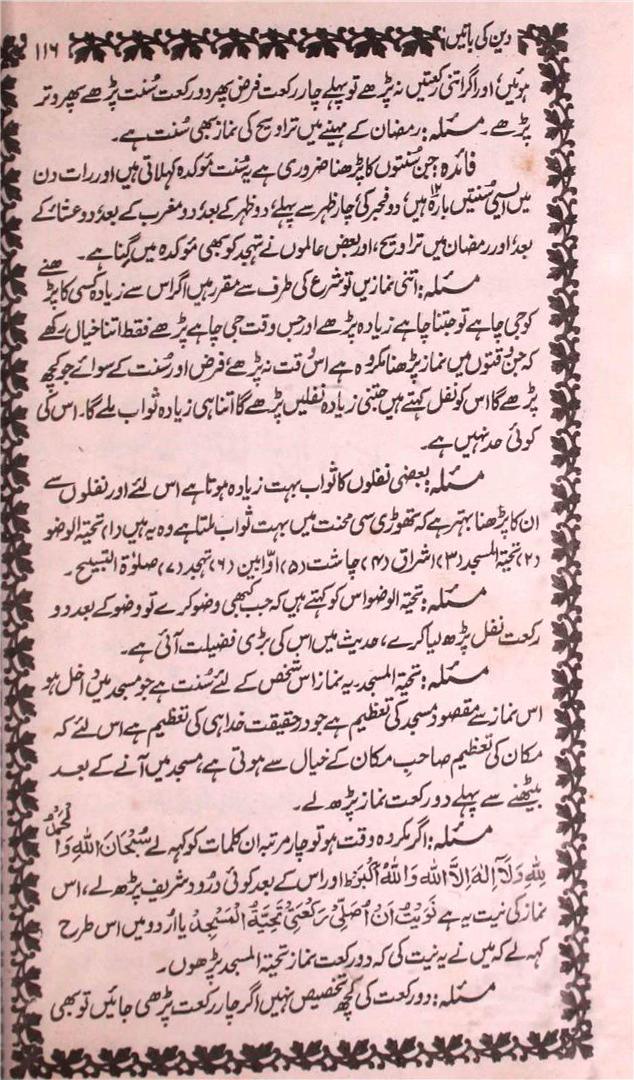 دین کی باتیں
۱۱۶
ہوئیں، اور اگر اتنی رکعتیں نہ پڑھے تو پہلے چار رکعت فرض پھر دو رکعت سُنت پڑھے پھر وتر
پڑھے۔ مسئلہ: رمضان کے مہینے میں تراویح کی نماز بھی سُنت ہے۔
فائدہ: جن سُنتوں کا پڑھنا ضروری ہے یہ سُنت مؤکدہ کہلاتی ہیں اور رات دن
میں ایسی سُنتیں بارہ۱۲ ہیں، دو فجر کی، چار ظہر سے پہلے، دو ظہر کے بعد، دو مغرب کے بعد، دو عشائے کے
بعد، اور رمضان میں تراویح، اور بعض عالموں نے تہجد کو بھی مؤکدہ میں گِنا ہے۔
مسئلہ: اتنی نمازیں تو شرع کی طرف سے مقرر ہیں اگر اس سے زیادہ کسی کا پڑھنے
کو جی چاہے تو جتنا چاہے زیادہ پڑھے اور جس وقت جی چاہے پڑھے فقط اتنا خیال رکھے
کہ جن وقتوں میں نماز پڑھنا مکروہ ہے اس وقت نہ پڑھے، فرض اور سُنت کے سوائے جو کچھ
پڑھے گا اس کو نفل کہتے ہیں جتنی زیادہ نفلیں پڑھے گا اتنا ہی زیادہ ثواب ملے گا۔ اس کی
کوئی حد نہیں ہے۔
مسئلہ: بعضی نفلوں کا ثواب بہت زیادہ ہوتا ہے اس لئے اور نفلوں سے
ان کا پڑھنا بہتر ہے کہ تھوڑی سی محنت میں بہت ثواب ملتا ہے وہ یہ ہیں (۱) تحیۃ الوضو
(۲) تحیۃ المسجد (۳) اشراق (۴) چاشت (۵) اوّابین (۶) تہجد (۷) صلوٰۃ التسبیح۔
مسئلہ: تحیۃ الوضو اس کو کہتے ہیں کہ جب کبھی وضو کرے تو وضو کے بعد دو
رکعت نفل پڑھ لیا کرے، حدیث میں اس کی بڑی فضیلت آئی ہے۔
مسئلہ: تحیۃ المسجد۔ یہ نماز اس شخص کے لئے سُنت ہے جو مسجد میں داخل ہو
اس نماز سے مقصود مسجد کی تعظیم ہے جو درحقیقت خدا ہی کی تعظیم ہے اس لئے کہ
مکان کی تعظیم صاحبِ مکان کے خیال سے ہوتی ہے، مسجد میں آنے کے بعد
بیٹھنے سے پہلے دو رکعت نماز پڑھ لے۔
مسئلہ: اگر مکروہ وقت ہو تو چار مرتبہ ان کلمات کو کہہ لے سُبْحَانَ اللّٰہِ وَالْحَمْدُ
لِلّٰہِ وَلَآ اِلٰہَ اِلَّا اللّٰہُ وَاللّٰہُ اَکْبَرُ اور اس کے بعد کوئی درود شریف پڑھ لے، اس
نماز کی نیت یہ ہے نَوَیْتُ اَنْ اُصَلِّیَ رَکْعَتَیْ تَحِیَّۃَ الْمَسْجِدِ یا اردو میں اس طرح
کہہ لے کہ میں نے یہ نیت کی کہ دو رکعت نماز تحیۃ المسجد پڑھوں۔
مسئلہ: دو رکعت کی کچھ تخصیص نہیں اگر چار رکعت پڑھی جائیں تو بھی